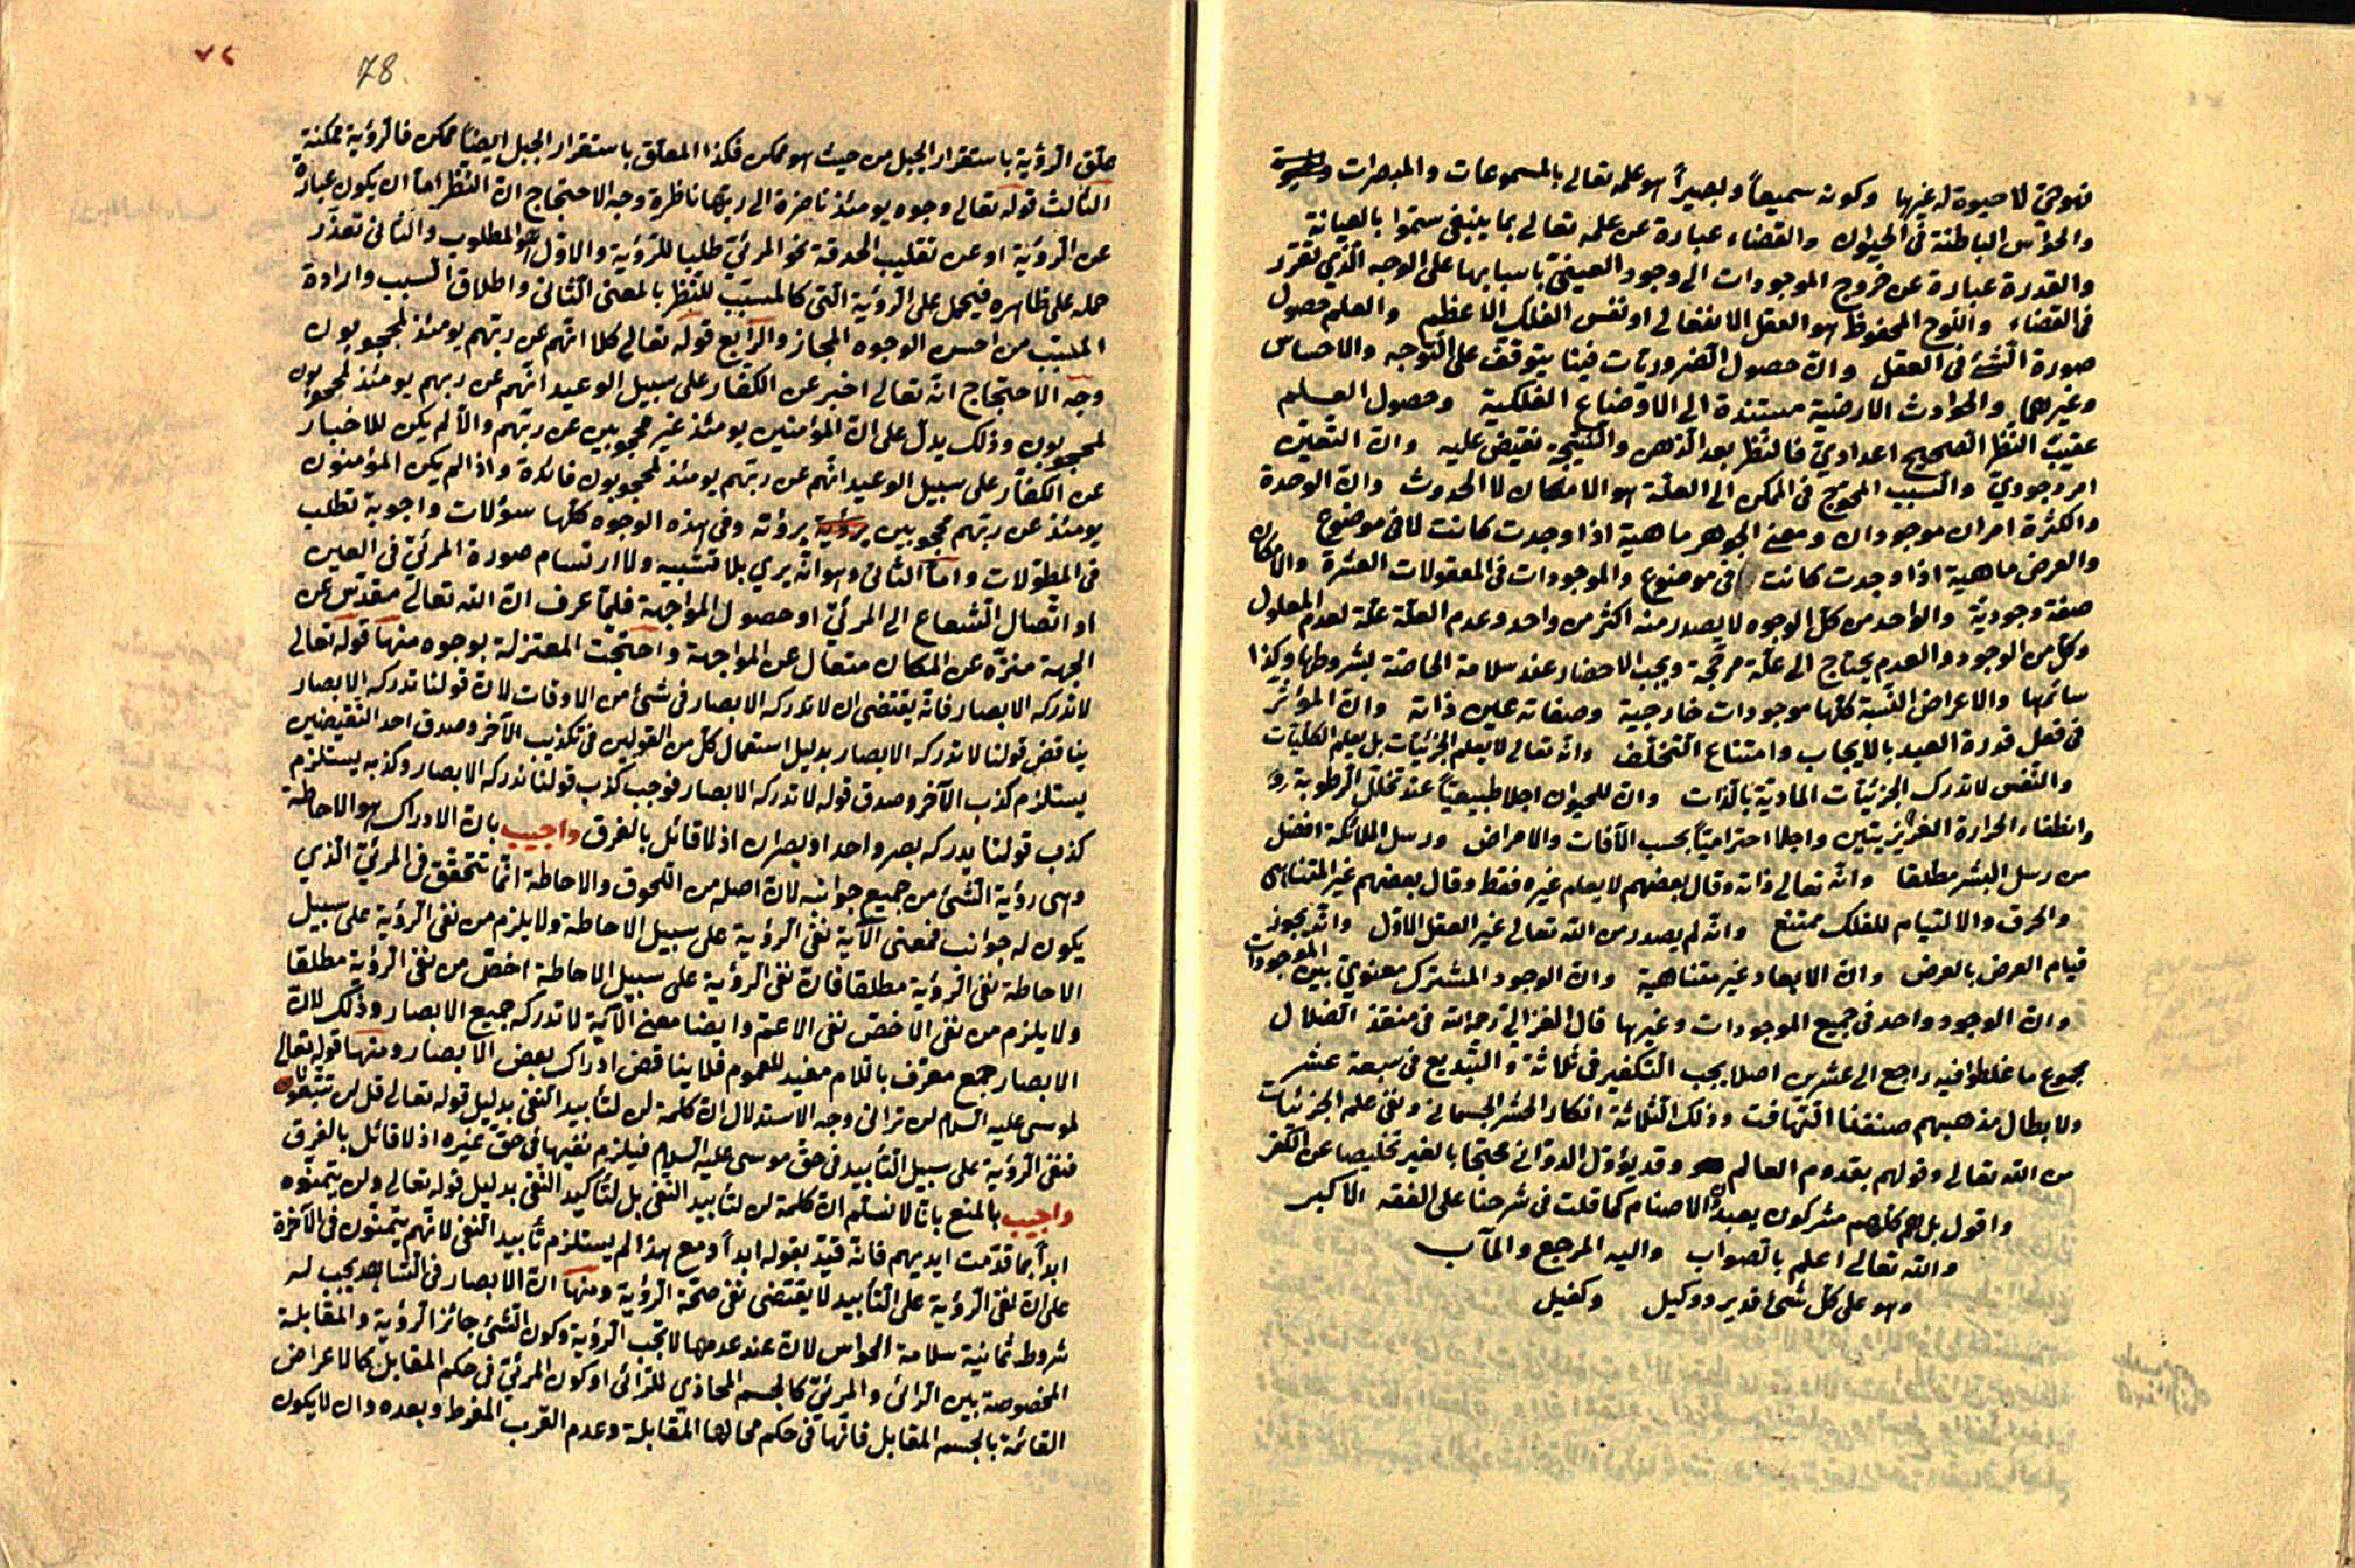 فهو حيّ لا حيوة له غيرها وكونه سميعاً وبصيراً هو علمه تعالى بالمسموعات والمبصرات
والحواس الباطنة في الحيوان والقضاء عبارة عن علمه تعالى بما ينبغي ستموا بالعيانة
والقدرة عبارة عن خروج الموجودات الى وجود العينيّ باسبابها على الوجه الّذي تقرر
في القضاء واللّوح المحفوظ هو العقل الانفعالي او نفس الفلك الاعظم والعلم حصول
صورة الشّئ في العقل وانّ حصول الضّروريّات فينا يتوقف على التّوجه والاحساس
وغيرهما والحوادث الارضية مستندة الى الاوضاع الفلكية وحصول العلم
عقيب النّظر الصّحيح اعداديّ فالنّظر بعد الذّهن والنّتيجة تفيض عليه وانّ التّعيّن
امر وجوديّ والسبب المحوج في الممكن الى العلّة هو الامكان لا الحدوث وانّ الوحدة
والكثرة امران موجودان ومعنى الجوهر ماهية اذا وجدت كانت لا في موضوع
والعرض ماهية اذا وجدت كانت في موضوع والموجودات في المعقولات العشرة والامكان
صفة وجوديّة والواحد من كلّ الوجوه لا يصدر منه اكثر من واحد وعدم العلّة علّة لعدم المعلول
وكلّ من الوجود والعدم يحتاج الى علّة مرجّحة ويجب الاحضار عند سلامة الحاسّة بشروطها وكذا
سائرها والاعراض النّسبة كلّها موجودات خارجية وصفاته عين ذاته وانّ المؤثّر
في فعل قدرة العبد بالايجاب وامتناع التّخلّف وانّه تعالى لا يعلم الجزئيّات بل يعلم الكلّيّات
والنّفس لا تدرك الجزئيّات الماديّة بالذّات وانّ للحيوان اجلا طبيعيّاً عند تحلّل الرّطوبة
وانطفاء الحرارة الغريزيتين واجلا احتراميّاً بحسب الآفات والامراض ورسل الملائكة افضل
من رسل البشر مطلقا وانّه تعالى ذاته وقال بعضهم لا يعلم غيره فقط وقال بعضهم غير المتناهى
والخرق والالتيام للفلك ممتنع وانّه لم يصدر من الله تعالى غير العقل الاوّل وانّه يجوز
قيام العرض بالعرض وانّ الابعاد غير متناهية وانّ الوجود المشترك معنويّ بين الموجودات
وانّ الوجود واحد في جميع الموجودات وغيرها قال الغزالي رحمه الله في منقذ الضّلال
مجموع ما غلطوا فيه راجع الى عشرين اصلا يجب التّكفير في ثلاثة والتّبديع في سبعة عشر
ولابطال مذهبهم صنفنا التّهافت وذلك الثّلاثة انكار الحشر الجسماني ونفي علم الجزئيّات
من الله تعالى وقولهم بقدوم العالم وقد يؤوّل الدوّاني محتجّا بالغير تخليصا عن الكفر
واقول بل هم كلّهم مشركون يعبدون الاصنام كما قلت في شرحنا على الفقه الاكبر
والله تعالى اعلم بالصّواب واليه المرجع والمآب
وهو على كلّ شئ قدير ووكيل وكفيل
٧٢
78
علّق الرّؤية باستقرار الجبل من حيث هو ممكن فكذا المعلّق باستقرار الجبل ايضاً ممكن فالرّؤية ممكنة
الثّالث قوله تعالى وجوه يومئذ ناضرة الى ربّها ناظرة وجه الاحتجاج انّ النّظر امّا ان يكون عبارة
عن الرّؤية او عن تقليب الحدقة نحو المرئيّ طلبا للرّؤية والاوّل هو المطلوب والثّاني تعذّر
حمله على ظاهره فيحمل على الرّؤية الّتي كالمسبّب للنّظر بالمعنى الثّاني واطلاق السّبب وارادة
المسبّب من احسن الوجوه المجاز والرّابع قوله تعالى كلا انّهم عن ربّهم يومئذ لمحجوبون
وجه الاحتجاج انّه تعالى اخبر عن الكفار على سبيل الوعيد انّهم عن ربهم يومئذ لمحجوبون
لمحجوبون وذلك يدلّ على انّ المؤمنين يومئذ غير محجوبين عن ربّهم والّا لم يكن للاخبار
عن الكفّار على سبيل الوعيد انّهم عن ربّهم يومئذ لمحجوبون فائدة واذا لم يكن المؤمنون
يومئذ عن ربّهم محجوبين برؤية يرؤنه وفي هذه الوجوه كلّها سؤلات واجوبة تطلب
في المطوّلات وامّا الثّاني وهو انّه يرى بلا تشبيه ولا ارتسام صورة المرئيّ في العين
او اتّصال الشّعاع الى المرئيّ او حصول المواجهة فلمّا عرف انّ الله تعالى مقدّس عن
الجهة منزّه عن المكان متعال عن المواجهة واحتجّت المعتزلة بوجوه منها قوله تعالى
لا تدركه الابصار فانّه يقتضى ان لا تدركه الابصار في شئ من الاوقات لانّ قولنا تدركه الابصار
يناقض قولنا لا تدركه الابصار بدليل استعمال كلّ من القولين في تكذيب الآخر وصدق احد النّقيضين
يستلزم كذب الآخر وصدق قوله لا تدركه الابصار فوجب كذب قولنا تدركه الابصار وكذبه يستلزم
كذب قولنا يدركه بصر واحد او بصران اذ لا قائل بالفرق واجيب بانّ الادراك هو الاحاطة
وهى رؤية الشّئ من جميع جوانبه لانّ اصله من اللّحوق والاحاطة انّما تتحقّق في المرئيّ الّذي
يكون له جوانب فمعنى الآية نفى الرّؤية على سبيل الاحاطة ولا يلزم من نفى الرّؤية على سبيل
الاحاطة نفى الرّؤية مطلقا فانّ نفى الرّؤية على سبيل الاحاطة اخصّ من نفى الرّؤية مطلقا
ولا يلزم من نفى الاخصّ نفى الاعمّ وايضا معنى الآية لا تدركه جميع الابصار وذلك لانّ
الابصار جمع معرّف باللّام مفيد للعموم فلا يناقض ادراك بعض الابصار ومنها قوله تعالى
لموسى عليه السّلام لن ترانى وجه الاستدلال انّ كلمة لن لتأبيد النّفى بدليل قوله تعالى قل لن تتّبعونا
فنفى الرّؤية على سبيل التّأبيد في حقّ موسى عليه السّلام فيلزم نفيها في حقّ غيره اذ لا قائل بالفرق
واجيب بالمنع بانّا لا نسلّم انّ كلمة لن لتأبيد النّفى بل لتأكيد النّفى بدليل قوله تعالى ولن يتمنّوه
ابداً بما قدّمت ايديهم فانّه قيّد بقوله ابداً ومع هذا لم يستلزم تأبيد النّفى لانّهم يتمنّون في الآخرة
على انّ نفى الرّؤية على التّأبيد لا يقتضى نفى صحّة الرّؤية ومنها انّ الابصار في الشّاهد يجب له
شروط ثمانية سلامة الحواس لانّ عند عدمها لا تجب الرّؤية وكون الشّئ جائز الرّؤية والمقابلة
المخصوصة بين الرّائى والمرئيّ كالجسم المحاذي للرّائى او كون المرئيّ في حكم المقابل كالاعراض
القائمة بالجسم المقابل فانّها في حكم محالها المقابلة وعدم القرب المفرط وبعده وان لا يكون